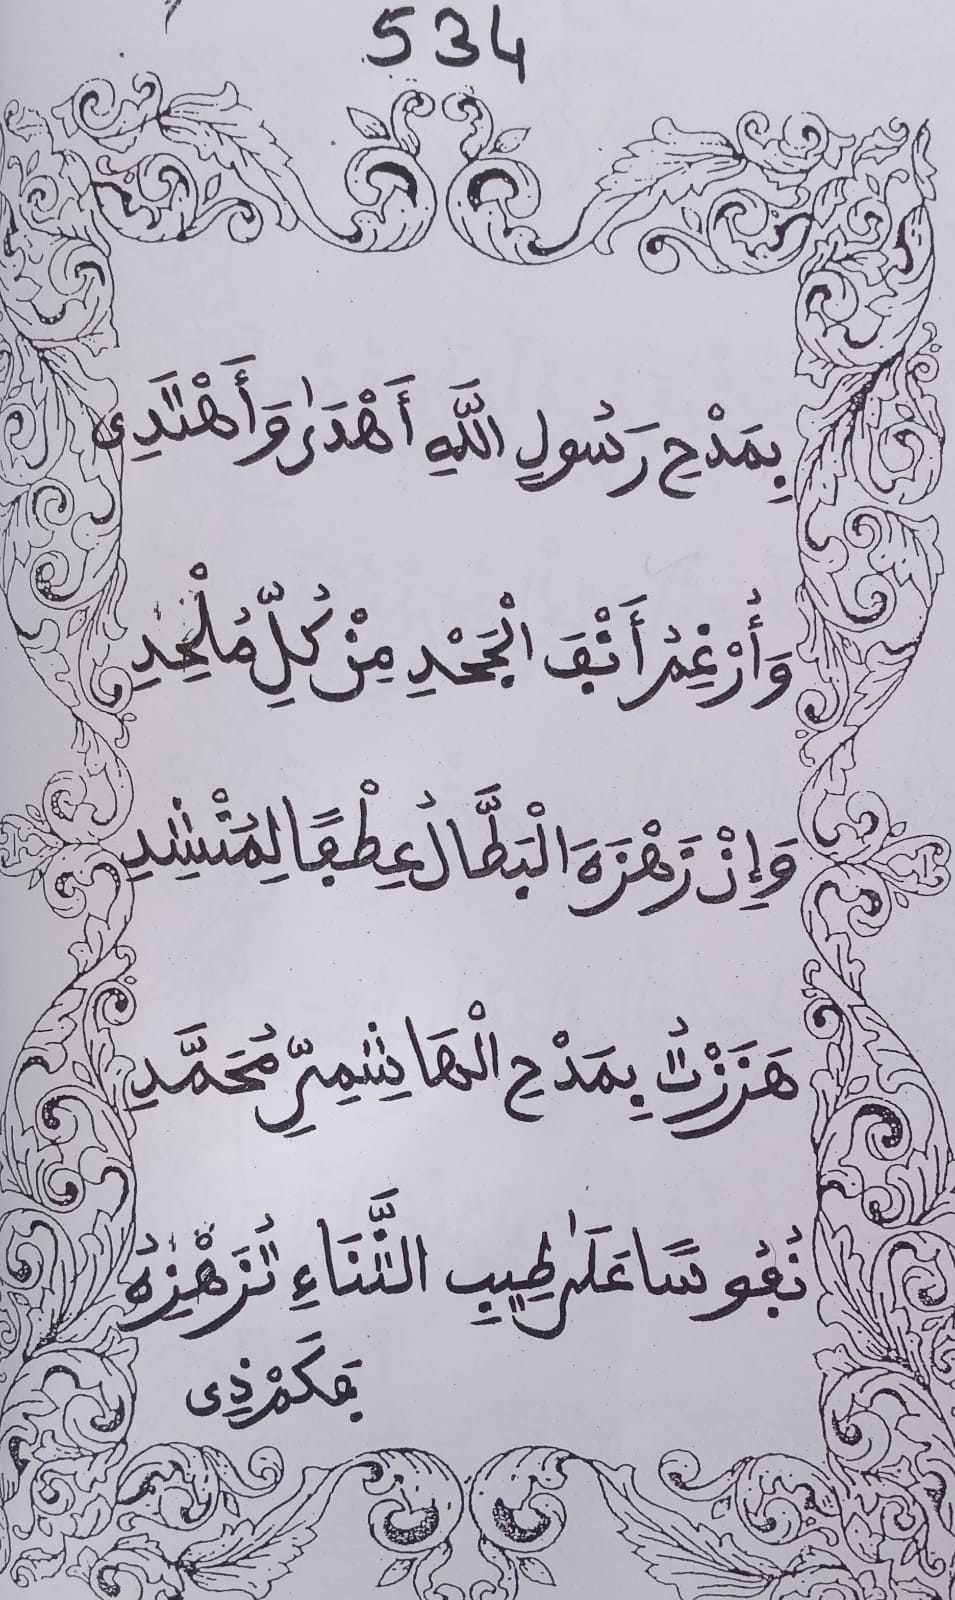 534
بِمَدْحِ رَسُولِ اللَّهِ أَهْدَىٰ وَأَهْتَدِي
وَأُرْغِمُ أَنْڢَ الْجَحْدِ مِنْ كُلِّ مُلْحِدِ
وَإِنْ زَهْزَهَ الْبَطَّالُ عِطْڢًا لِمُنْشِدِ
هَزَزْتُ بِمَدْحِ الْهَاشِمِيِّ مُحَمَّدِ
نُڢُوسًا عَلَىٰ طِيبِ الثَّنَاءِ تُزَهْزِهُ
ڢَكَمْ ذِي